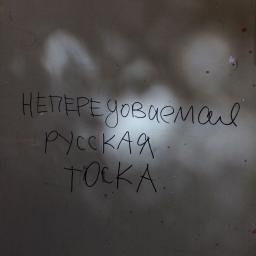 НЕПЕРЕДОВАЕМАЯ
РУССКАЯ
ТОСКА